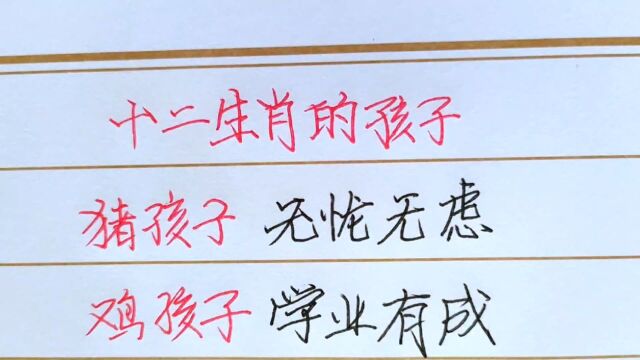 十二生肖的孩子
猪孩子 无忧无虑
鸡孩子 学业有成